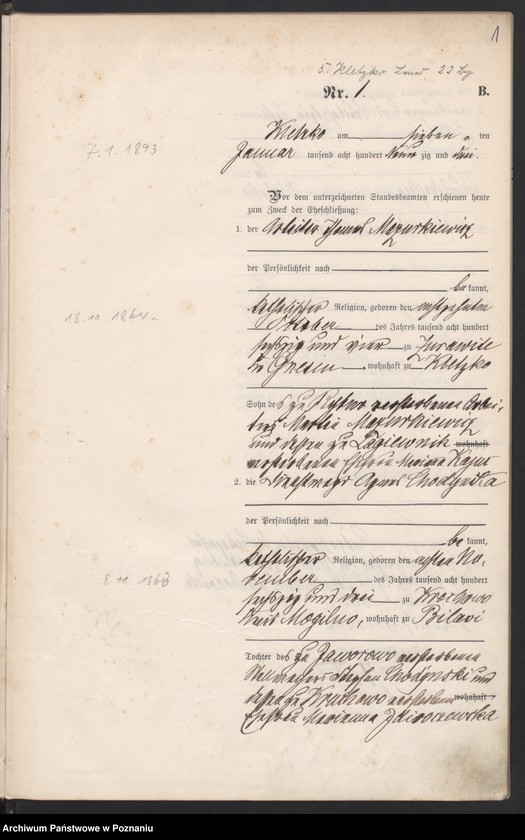 1
5. Kletzko
Nr. 1.
B.
Kletzko am sieben ten
7.1.1893
Januar tausend acht hundert neun zig und drei.
Vor dem unterzeichneten Standesbeamten erschienen heute
zum Zweck der Eheschließung:
1. der Arbeiter Thomas Mazurkiewicz
der Persönlichkeit nach
be kannt,
katholischer Religion, geboren den achtzehnten
18.10.1864
Oktober des Jahres tausend acht hundert
sechszig und vier zu
Gnesen, wohnhaft zu Kletzko
Sohn des zu verstorbenen Arbei-
ters Martin Mazurkiewicz
und dessen zu Lagiewnik wohnhaft
verstorbenen Ehefrau
2. die Agnes Chodynska
der Persönlichkeit nach
be kannt,
katholischer Religion, geboren den achten No-
vember des Jahres tausend acht hundert
8.11.1863
sechszig und drei zu
Kreis Mogilno, wohnhaft zu Bilavi
Tochter des zu Jaworowo verstorbenen
Stellmachers Stephan Chodynski und
dessen zu Kruchowo verstorbenen wohnhaft
Ehefrau Marianna
Archiwum Państwowe w Poznaniu
Archiwum Państwowe w Poznaniu